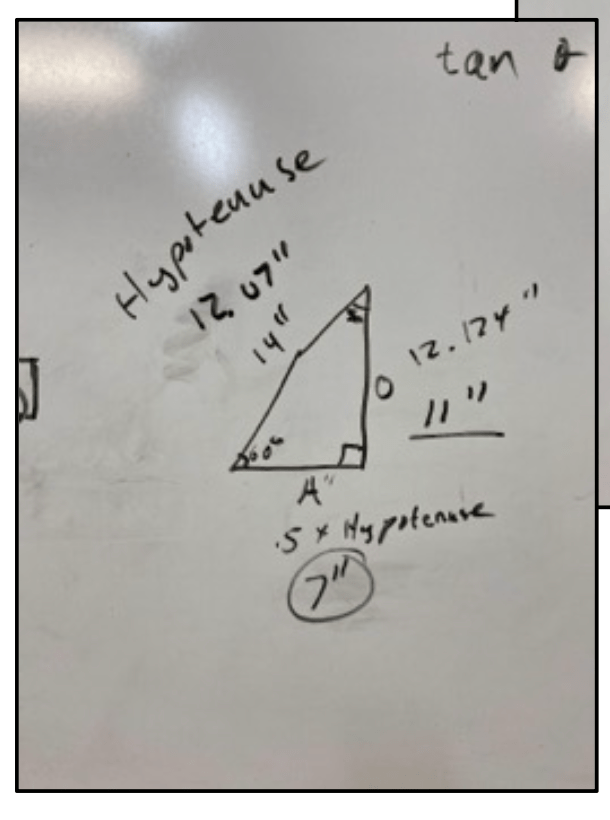 tan θ
Hypotenuse
12.07"
14"
12.124"
O
11"
60°
A"
.5 x Hypotenuse
7"